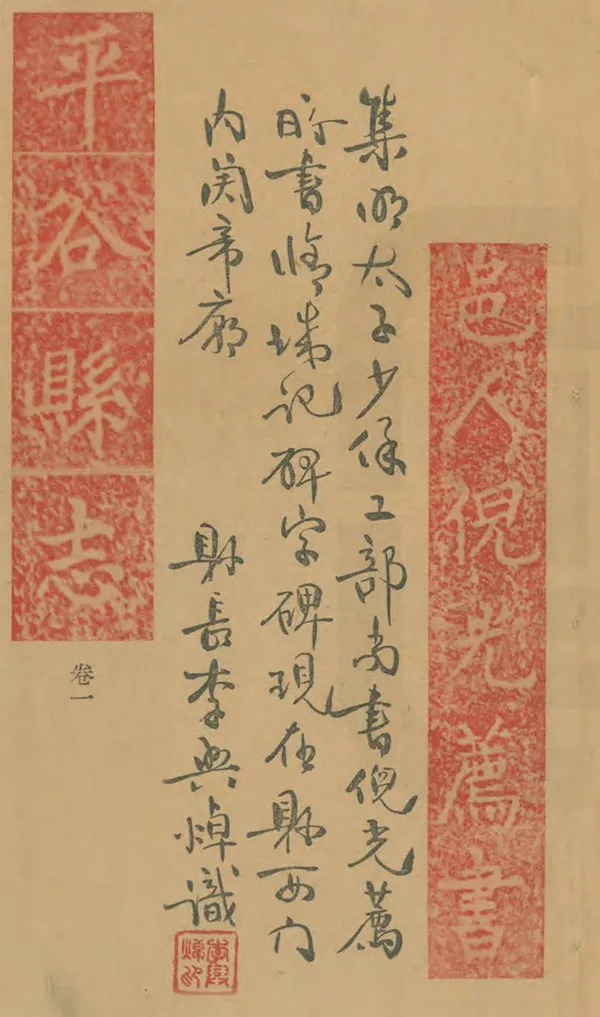 邑人倪光薦書
集明太子少保工部尚書倪光薦
所書修城記碑字碑現在縣西門
内関帝廟
縣長李興焯識
李興焯印
平谷縣志
卷一